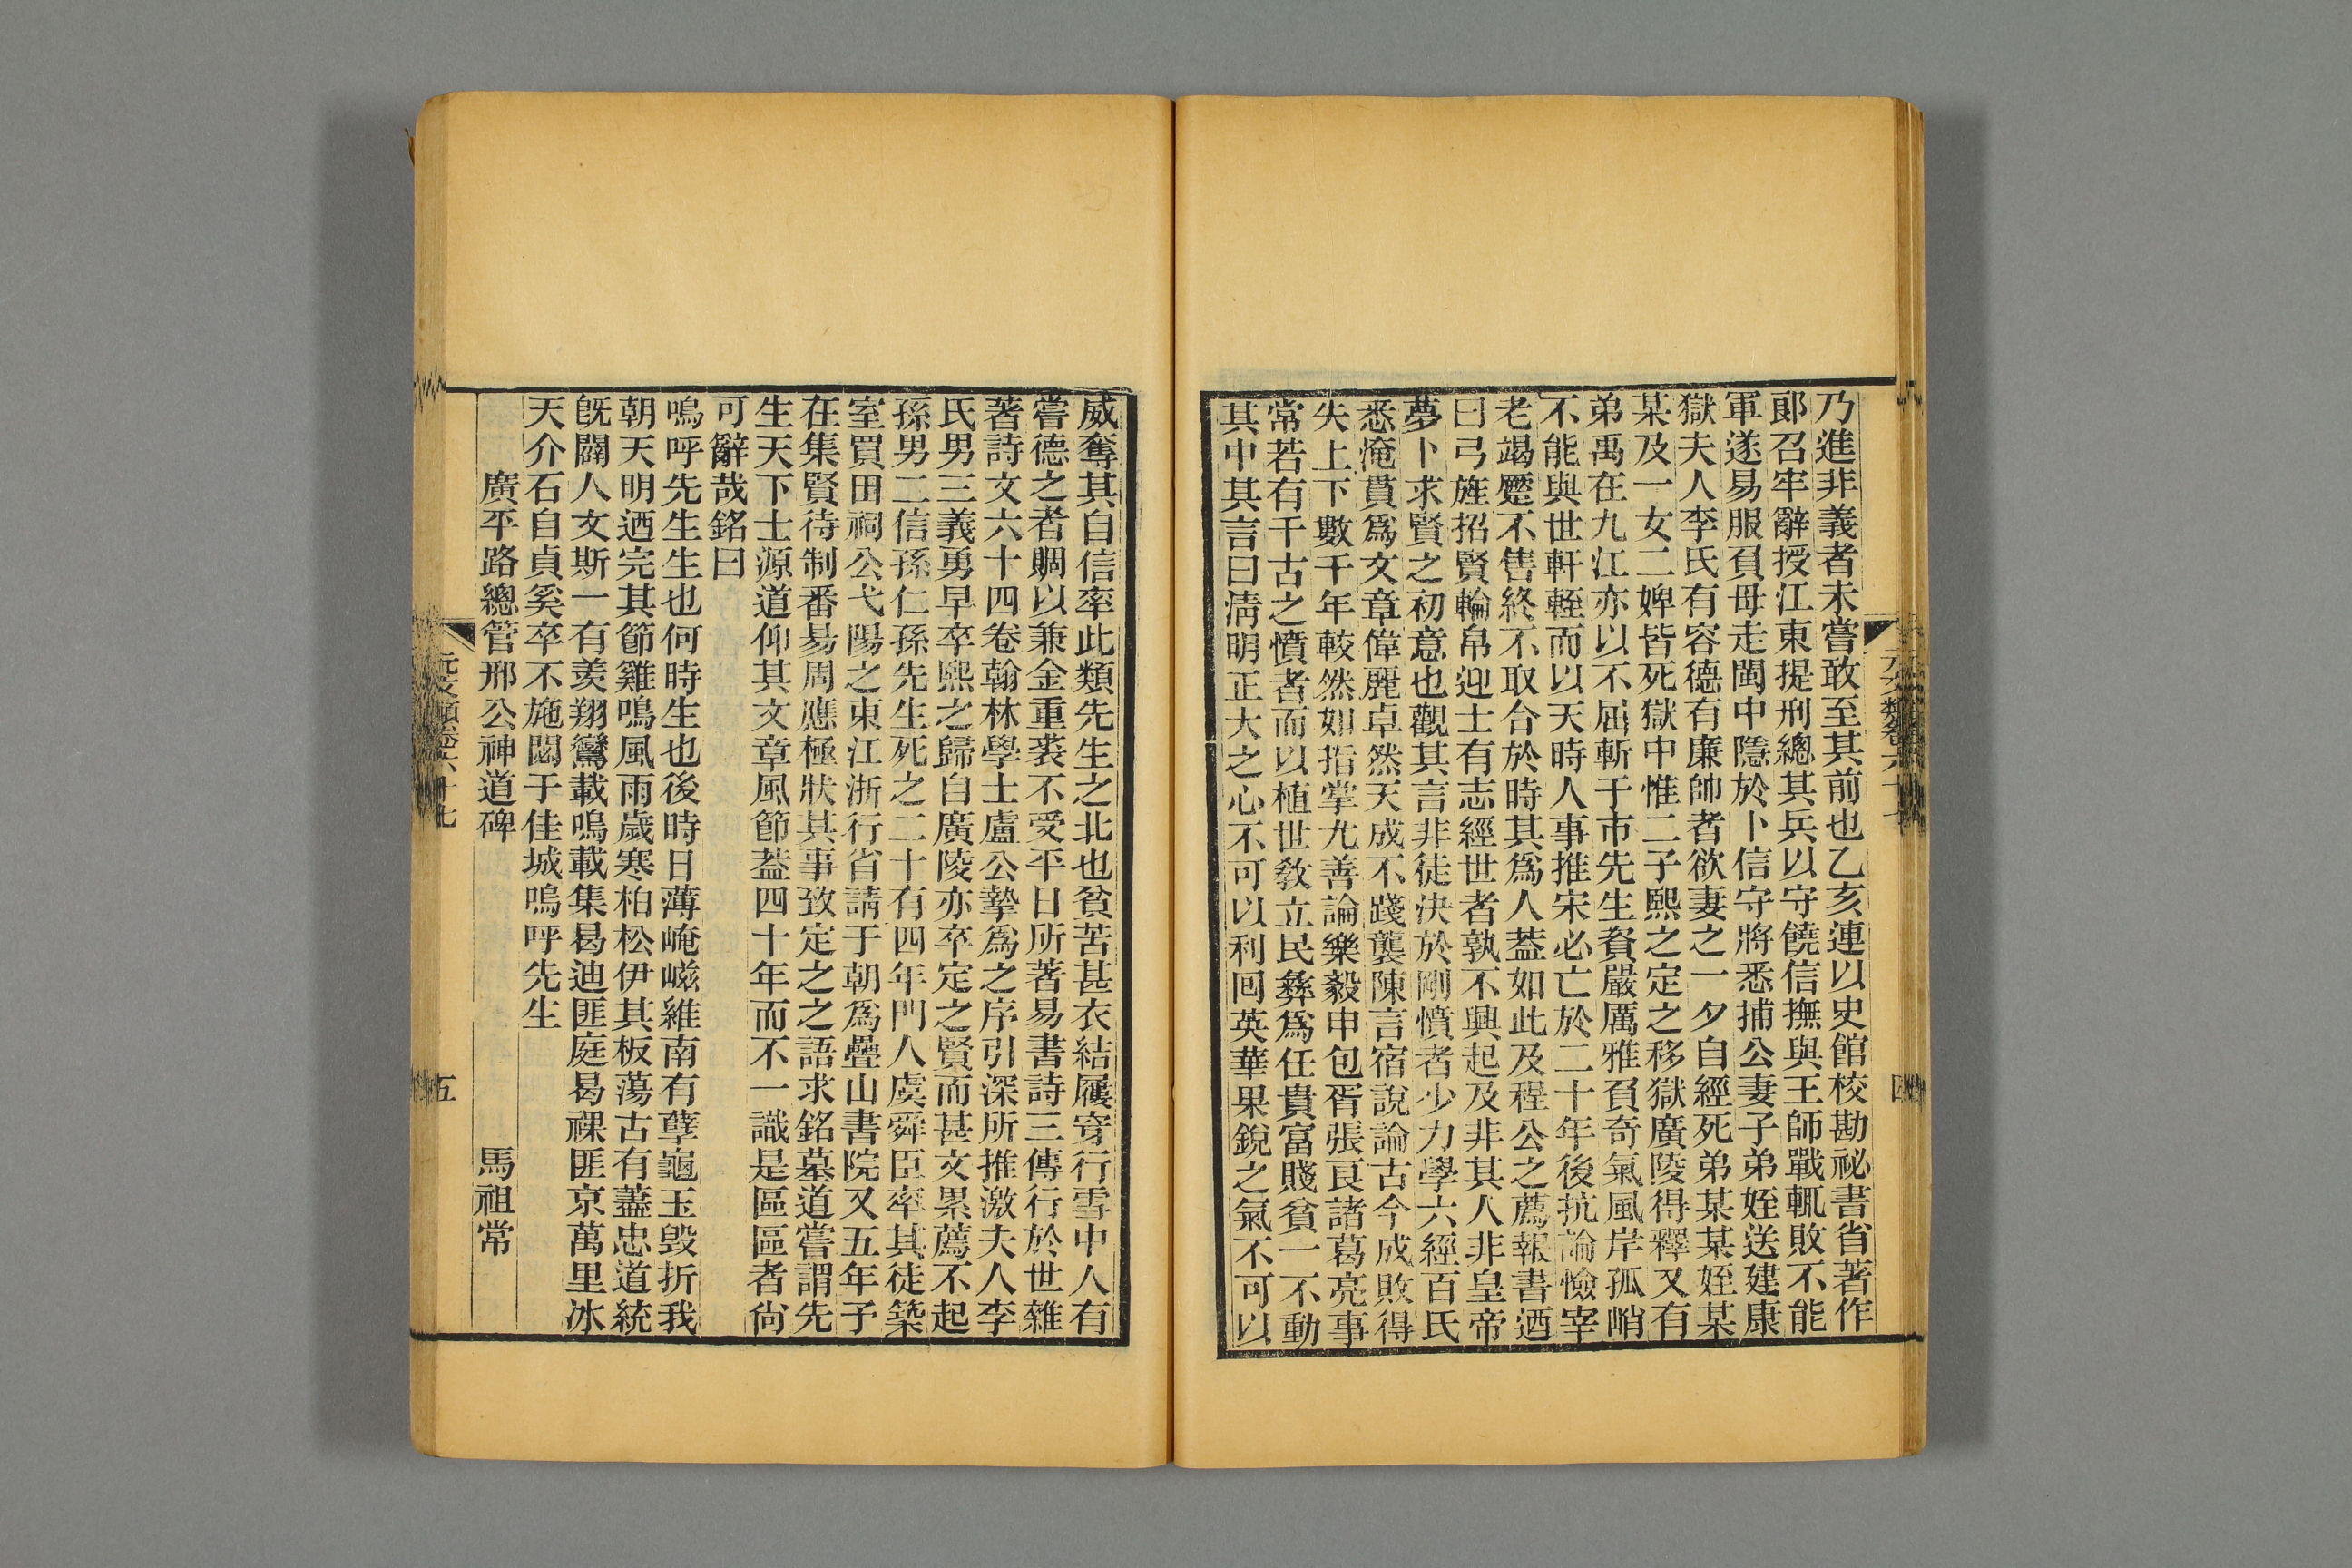 乃進非義者未嘗敢至其前也乙亥連以史館校勘祕書省著作
郞召牢辭授江東提刑總其兵以守饒信撫與王師戰輒敗不能
軍遂易服負母走閩中隱於卜信守將悉捕公妻子弟姪送建康
獄夫人李氏有容德有廉帥者欲妻之一夕自經死弟某某姪某
某及一女二婢皆死獄中惟二子熙之定之移獄廣陵得釋又有
弟禹在九江亦以不屈斬于市先生貲嚴厲雅負奇氣風岸孤峭
不能與世軒輊而以天時人事推宋必亡於二十年後抗論憸宰
老竭蹷不售終不取合於時其爲人葢如此及程公之薦報書迺
曰弓旌招賢輪帛迎士有志經世者孰不興起及非其人非皇帝
夢卜求賢之初意也觀其言非徒決於剛憤者少力學六經百氏
悉淹貫爲文章偉麗卓然天成不踐襲陳言宿說論古今成敗得
失上下數千年較然如指掌尤善論樂毅申包胥張良諸葛亮事
常若有千古之憤者而以植世敎立民彝爲任貴富賤貧一不動
其中其言曰淸明正大之心不可以利囘英華果銳之氣不可以
元文類卷六十七
四
威奪其自信率此類先生之北也貧苦甚衣結履穿行雪中人有
嘗德之者賙以兼金重裘不受平日所著易書詩三傳行於世雜
著詩文六十四卷翰林學士盧公摯爲之序引深所推激夫人李
氏男三義勇早卒熙之歸自廣陵亦卒定之賢而甚文累薦不起
孫男二信孫仁孫先生死之二十有四年門人虞舜臣率其徒築
室買田祠公弋陽之東江浙行省請于朝爲疊山書院又五年子
在集賢待制番昜周應極狀其事致定之之語求銘墓道嘗謂先
生天下士源道仰其文章風節葢四十年而不一識是區區者尙
可辭哉銘曰
嗚呼先生生也何時生也後時日薄崦嵫維南有孽龜玉毀折我
朝天明迺完其節雞鳴風雨歲寒柏松伊其板蕩古有藎忠道統
旣闢人文斯一有羙翔鸞載鳴載集曷迪匪庭曷祼匪京萬里冰
天介石自貞奚卒不施閟于佳城嗚呼先生
廣平路總管邢公神道碑　馬祖常
元文類卷六十七
五